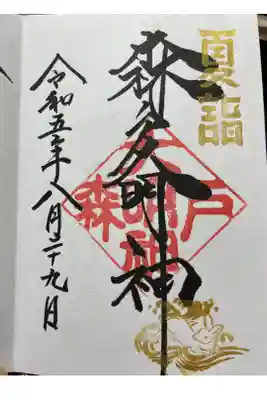 夏詣
森戸明神
森戸大明神
令和五年八月二十九日